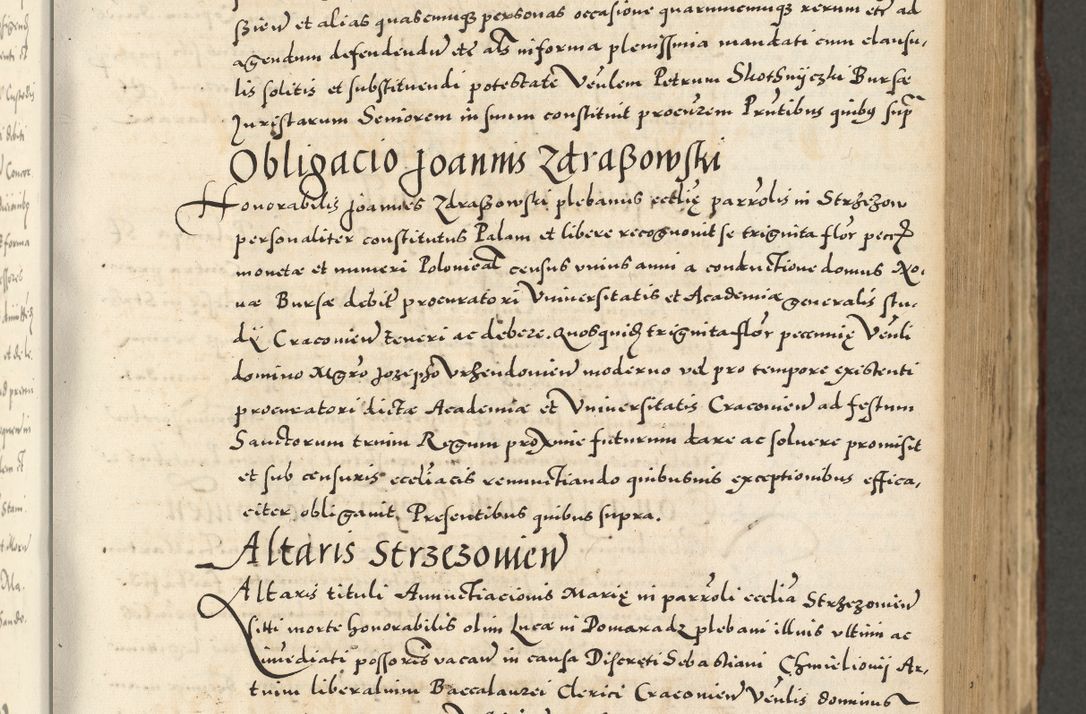 ßień et alias quascumque personas occasione quarumcumque rerum etc ad
agendum defendendū etc als in forma plenissima mandati cum clausu,
lis solitis et substituendi potestate Veñlem Petrum Skotsnyczki Bursæ
Juristarum Seniorem in suum constituit procuřem Prñtibus quibus supª
Obligacio Joannis Zdraßowski
Honorabilis Joannes Zdraßowski plebanus ecclię parřolis in Strzezow
personaliter constitutus Palam et libere recognouit se triginta flor pecc
monetæ et numeri Polonical census unius anni a conductione domus No,
uæ Bursæ debit procuratori Vniuersitatis et Academiæ generalis stu,
dij Cracouień teneri ac debere. Quosquidē triginta flor pecunię Veñli
domino Mgro Jozepho Vrhendouień moderno vel pro tempore existenti
procuratori dictæ Academiæ et Vniuersitatis Cracouień ad festum
Sanctorum trium Regum proxime futurum dare ac soluere promisit
et sub censuris eccliacis renunctiando quibusuis exceptionibus effica,
citer obligauit. Presentibus quibus supra.
Altaris Strzezouień
Altaris tituli Annuctiacionis Marię in parřoli ecclia Strzezouień
siti morte honorabilis olim Lucæ in Pomarzadz plebani illius vltimi ac
imediati possoris vacań in causa Discreti Sebastiani Chmieliouij Ar,
tium liberalium Baccalaurei Clerici Cracouień Veñlis dominus